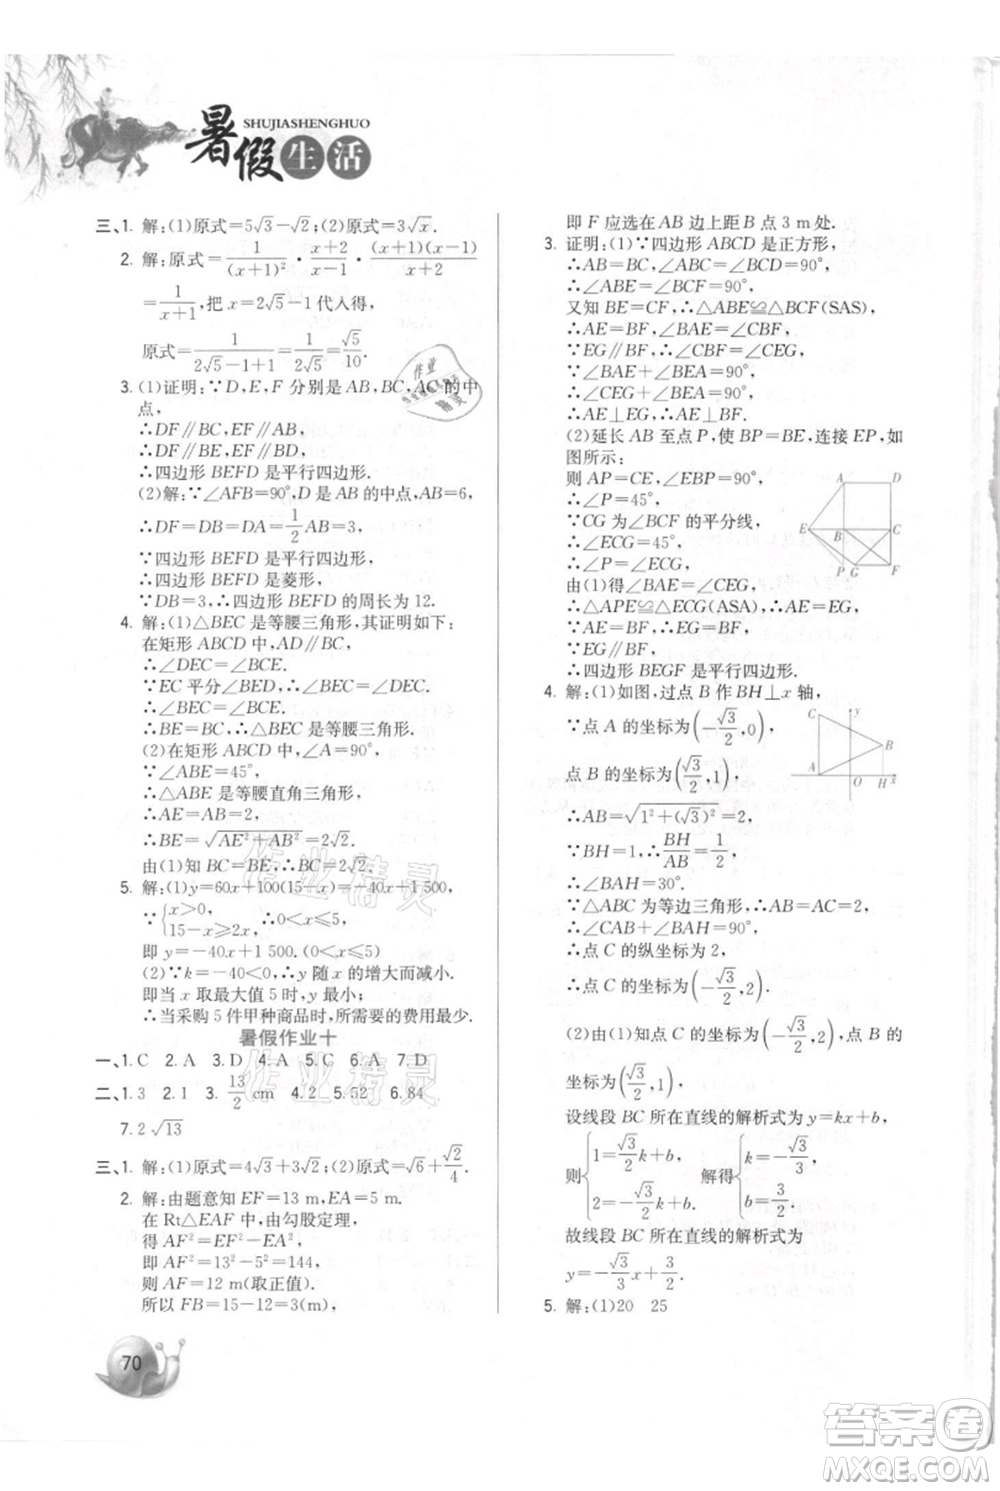 SHUJIASHENGHUO
暑假生活
三、1. 解:(1)原式=5√3-√2;(2)原式=3√x.
2. 解:原式=1/(x+1)²·(x+2)/(x-1)·(x+1)(x-1)/(x+2)
=1/(x+1),把 x=2√5-1代入得,
原式=1/(2√5-1+1)=1/(2√5)=√5/10.
3. (1)证明:∵D,E,F 分别是 AB,BC,AC的中
点,
∴DF∥BC,EF∥AB,
∴DF∥BE,EF∥BD,
∴四边形 BEFD 是平行四边形.
(2)解:∵∠AFB=90°,D 是 AB 的中点,AB=6,
∴DF=DB=DA=1/2AB=3,
∵四边形 BEFD 是平行四边形,
∴四边形 BEFD 是菱形,
∵DB=3,∴四边形 BEFD 的周长为 12.
4. 解:(1)△BEC 是等腰三角形,其证明如下:
在矩形 ABCD 中,AD∥BC,
∴∠DEC=∠BCE.
∵EC 平分∠BED,∴∠BEC=∠DEC,
∴∠BEC=∠BCE,
∴BE=BC,∴△BEC 是等腰三角形.
(2)在矩形 ABCD 中,∠A=90°,
∵∠ABE=45°,
∴△ABE 是等腰直角三角形,
∴AE=AB=2,
∴BE=√(AE²+AB²)=2√2.
由(1)知 BC=BE,∴BC=2√2.
5. 解:(1)y=60x+100(15-x)=-40x+1 500,
∵{x>0, 15-x≥2x, ∴0<x≤5,
即 y=-40x+1 500.(0<x≤5)
(2)∵k=-40<0,∴y 随 x 的增大而减小.
即当 x 取最大值 5 时,y 最小;
∴当采购 5 件甲种商品时,所需要的费用最少.
暑假作业十
一、1. C 2. A 3. D 4. A 5. C 6. A 7. D
二、1. 3 2. 1 3. 13/2 cm 4. 2 5. 52 6. 84
7. 2√13
三、1. 解:(1)原式=4√3+3√2;(2)原式=√6+√2/4.
2. 解:由题意知 EF=13 m,EA=5 m.
在 Rt△EAF 中,由勾股定理,
得 AF²=EF²-EA²,
即 AF²=13²-5²=144,
则 AF=12 m(取正值).
所以 FB=15-12=3(m),
70
即 F 应选在 AB 边上距 B 点 3 m 处.
3. 证明:(1)∵四边形 ABCD 是正方形,
∴AB=BC,∠ABC=90°,
∴∠ABE=∠BCF=90°,
又知 BE=CF,∴△ABE≌△BCF(SAS),
∴AE=BF,∠BAE=∠CBF,
∵EG∥BF,∴∠CBF=∠CEG,
∵∠BAE+∠BEA=90°,
∴∠CEG+∠BEA=90°,
∴AE⊥EG,∴AE⊥BF.
(2)延长 AB 至点 P,使 BP=BE,连接 EP,如
图所示:
则 AP=CE,∠EBP=90°,
∴∠P=45°,
∵CG 为∠BCF 的平分线,
∴∠ECG=45°,
∴∠P=∠ECG,
由(1)得∠BAE=∠CEG,
∴△APE≌△ECG(ASA),∴AE=EG,
∵AE=BF,∴EG=BF,
∵EG∥BF,
∴四边形 BEGF 是平行四边形.
A D E B C P G F
4. 解:(1)如图,过点 B 作BH⊥x 轴,
∵点 A 的坐标为(-√3/2,0),
点 B 的坐标为(√3/2,1),
C y B A O H x
∴AB=√(1²+(√3)²)=2,
∵BH=1,∴BH/AB=1/2,
∴∠BAH=30°.
∵△ABC 为等边三角形,∴AB=AC=2,
∴∠CAB+∠BAH=90°,
∴点 C 的纵坐标为 2,
∴点 C 的坐标为(-√3/2,2).
(2)由(1)知点 C 的坐标为(-√3/2,2),点 B 的
坐标为(√3/2,1),
设线段 BC 所在直线的解析式为 y=kx+b,
则{1=√3/2k+b, 2=-√3/2k+b, 解得{k=-√3/3, b=3/2,
故线段 BC 所在直线的解析式为
y=-√3/3x+3/2.
5. 解:(1)20 25
作业精灵
作业精灵
答案卷
MXQE.COM